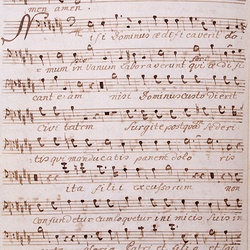 men amen.
Nisi Dominus ædificaverit do
mum in Vanum Laboraverunt qui ædifi
cant eam nisi Dominus custodierit
Civitatem Surgite postquam sederi
tis qui manducatis panem dolo ris
ita filii excussorum non
confundetur cum loquetur inimicis suis in
gloria Patri et filio et